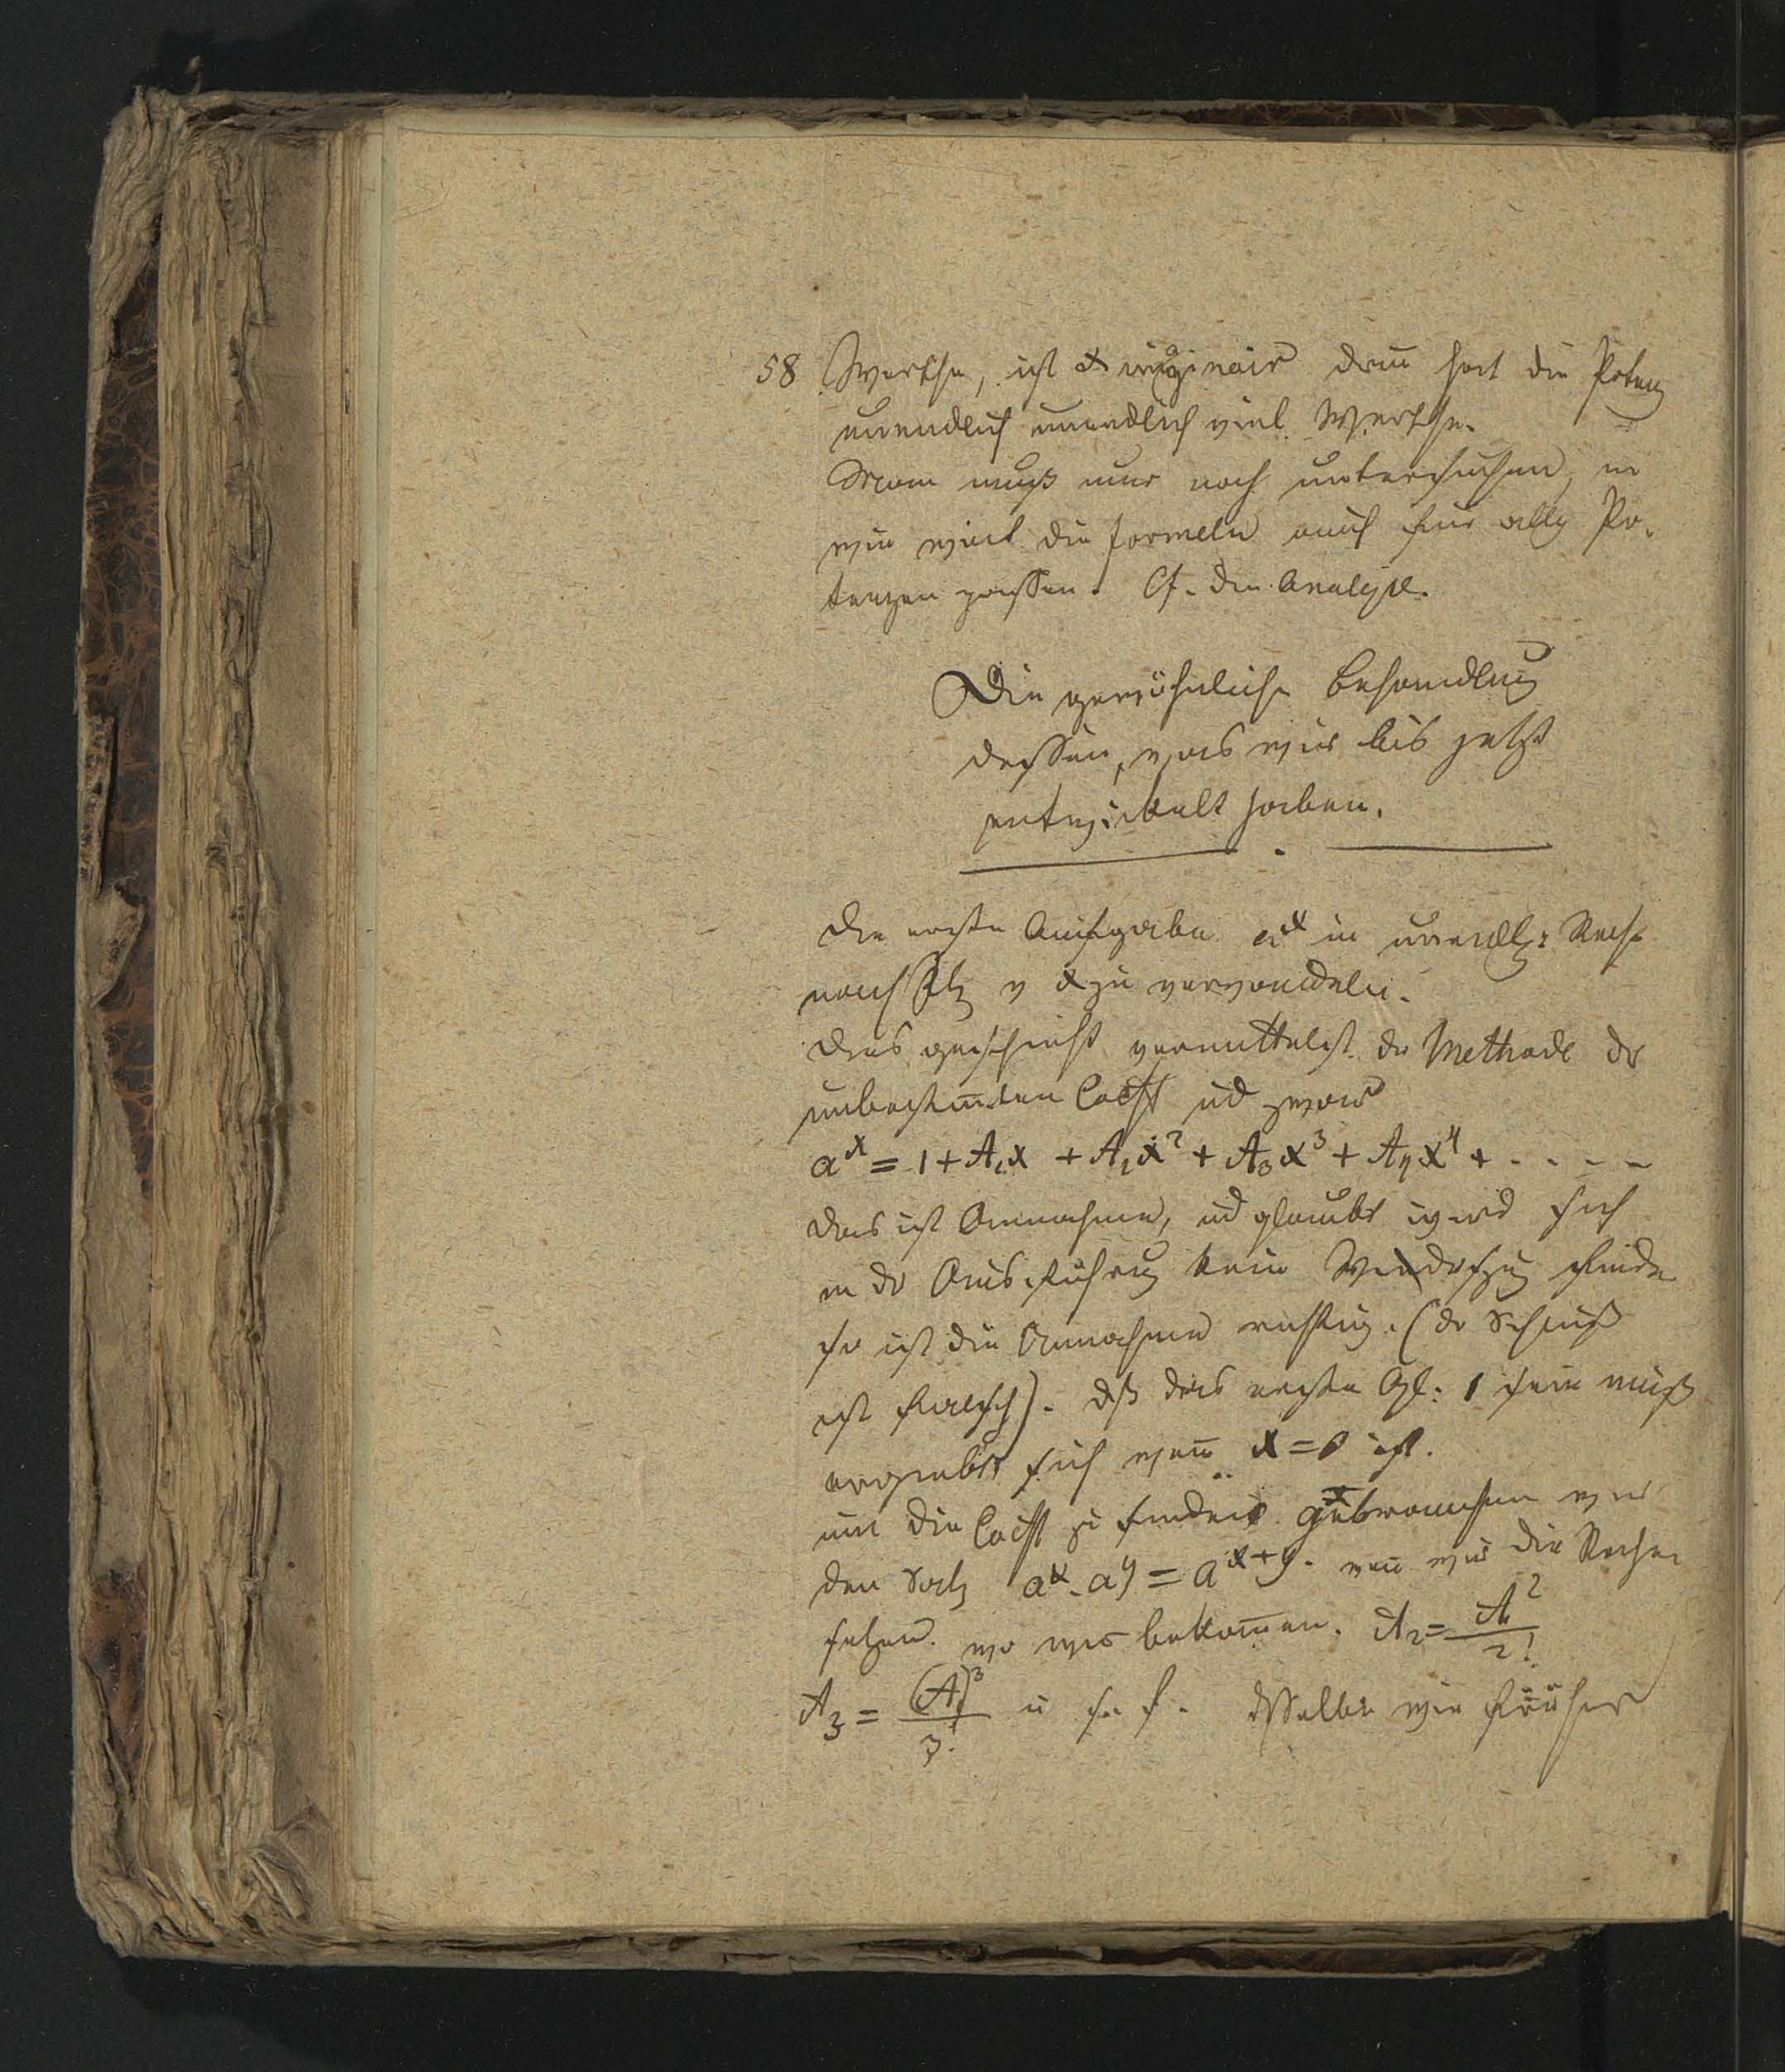 58 Werthe, ist x imaginair dann hat die Potenz
unendlich unendlich viel Werthe.
Man muß nur noch untersuchen, in
wie weit die Formeln auch für allg Po-
tenzen passen. Cf. die Analyse.
Die gewöhnliche Behandlung
dessen, was wir bis jetzt
entwickelt haben.
Die erste Aufgabe a^x in unendl: Reihe
nach Ptz v x zu verwandeln.
Dies geschieht vermittelst der Methode der
unbestimten Coeff und zwar
a^x = 1 + A₁x + A₂x² + A₃x³ + A₄x⁴ + - - - -
Das ist Annahme, ud glaubt wird sich
in der Ausführung kein Widerspruch finde
so ist die Annahme richtig. (der Schluß
ist falsch). dß das erste Gl: 1 sein muß
ergiebt sich wenn x=0 ist.
um die Coeff zu finden gebrauchen wir
den Satz a^x . a^y = a^{x+y}. wenn wir die Reihen
setzen. wo wir bekommen. A₂ = A₁²/2!
A₃ = (A₁)³/3! u s. f. dsselbe wie früher